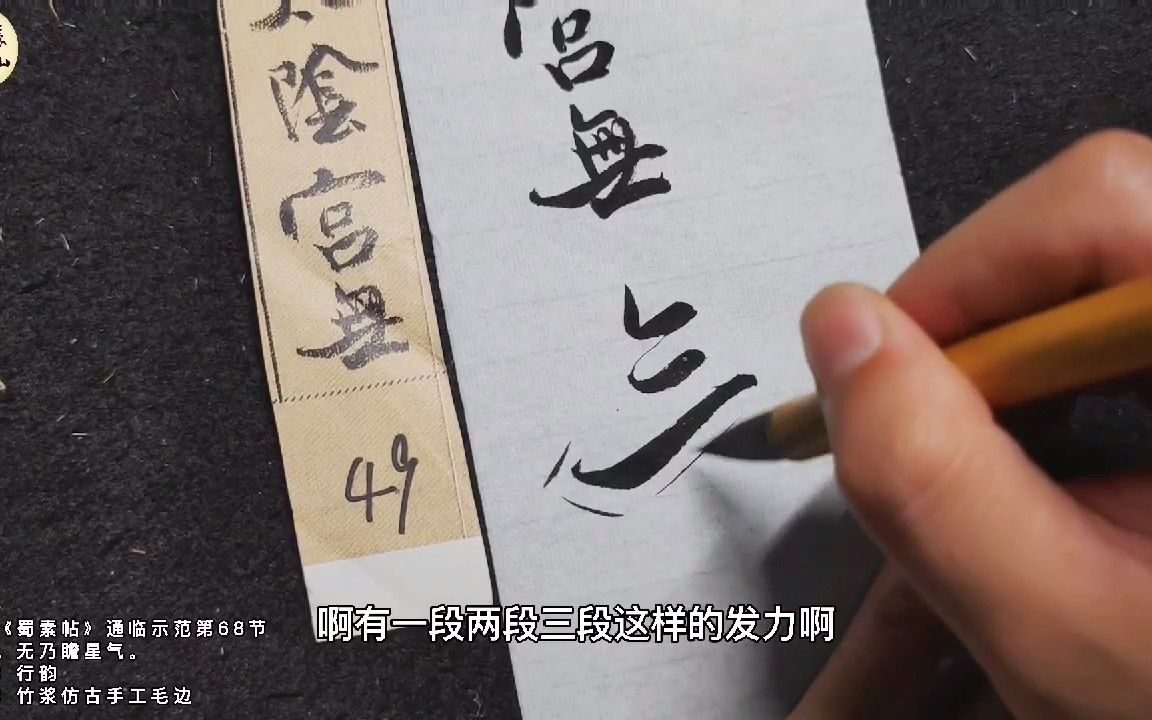 陰
宫
無
49
宫
無
啊有一段两段三段这样的发力啊
《蜀素帖》通临示范第68节
无乃瞻星气。
行韵
竹浆仿古手工毛边